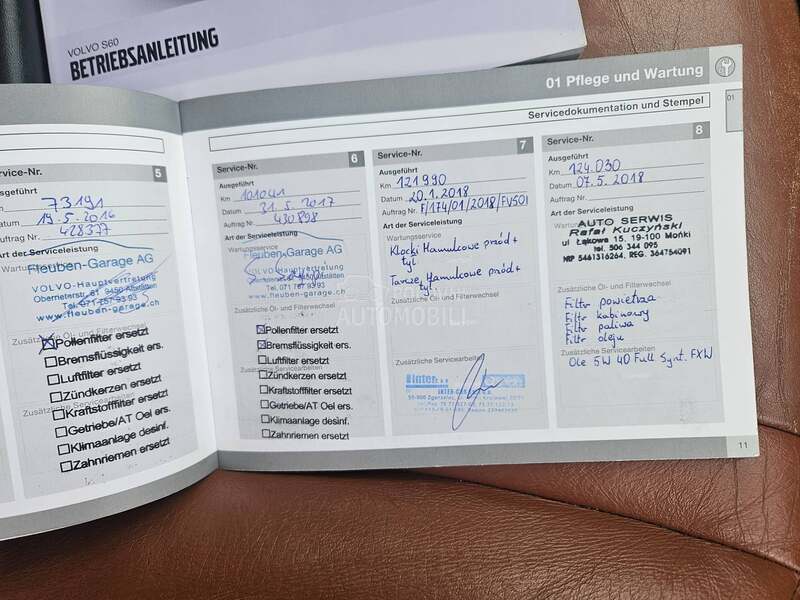 VOLVO S60
BETRIEBSANLEITUNG
01 Pflege und Wartung
Servicedokumentation und Stempel
01
Service-Nr. 5
Ausgeführt
73191
Datum 19.5.2016
Auftrag Nr. 428377
Art der Serviceleistung
Fleuben-Garage AG
VOLVO-Hauptvertretung
Oberneterstr. 61 9450 Altstätten
Tel. 071 757 93 93
www.fleuben-garage.ch
Zusätzliche Öl- und Filterwechsel
Pollenfilter ersetzt
Bremsflüssigkeit ers.
Luftfilter ersetzt
Zündkerzen ersetzt
Zusätzliche Servicearbeiten
Kraftstofffilter ersetzt
Getriebe/AT Oel ers.
Klimaanlage desinf.
Zahnriemen ersetzt
Service-Nr. 6
Ausgeführt
Km 101041
Datum 31.5.2017
Auftrag Nr. 430898
Art der Serviceleistung
Wartungsservice
Fleuben-Garage AG
VOLVO-Hauptvertretung
Tel. 071 757 93 93
www.fleuben-garage.ch
Zusätzliche Öl- und Filterwechsel
Pollenfilter ersetzt
Bremsflüssigkeit ers.
Luftfilter ersetzt
Zusätzliche Servicearbeiten
Zündkerzen ersetzt
Kraftstofffilter ersetzt
Getriebe/AT Oel ers.
Klimaanlage desinf.
Zahnriemen ersetzt
Service-Nr. 7
Ausgeführt
Km 121990
Datum 20.1.2018
Auftrag Nr. F/174/01/2018/FVS01
Art der Serviceleistung
Wartungsservice
Klocki Hamulcowe przód +
tył
Tarcze Hamulcowe przód +
tył
Zusätzliche Öl- und Filterwechsel
Zusätzliche Servicearbeiten
Service-Nr. 8
Ausgeführt
Km 124.030
Datum 07.5.2018
Auftrag Nr.
AUTO SERWIS
Rafał Kuczyński
ul Łąkowa 15, 19-100 Mońki
tel. 506 344 095
NRP 5461316264, REG. 364754091
Filtr powietrza
Filtr kabinowy
Filtr paliwa
Filtr oleju
Zusätzliche Servicearbeiten
Ole 5W 40 Full Synt. FXW
11
AUTOMOBILI